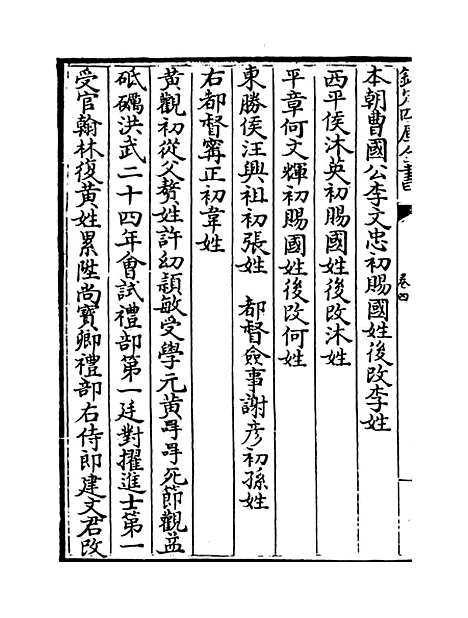 欽定四庫全書
卷四
本朝曹國公李文忠初賜國姓後改李姓
西平侯沐英初賜國姓後改沐姓
平章何文輝初賜國姓後改何姓
東勝侯汪興祖初張姓　都督僉事謝彦初孫姓
右都督甯正初韋姓
黄觀初從父贅姓許幼穎敏受學元黄冔冔死節觀益
砥礪洪武二十四年會試禮部第一廷對擢進士第一
受官翰林復黄姓累陞尚寶卿禮部右侍郎建文君改